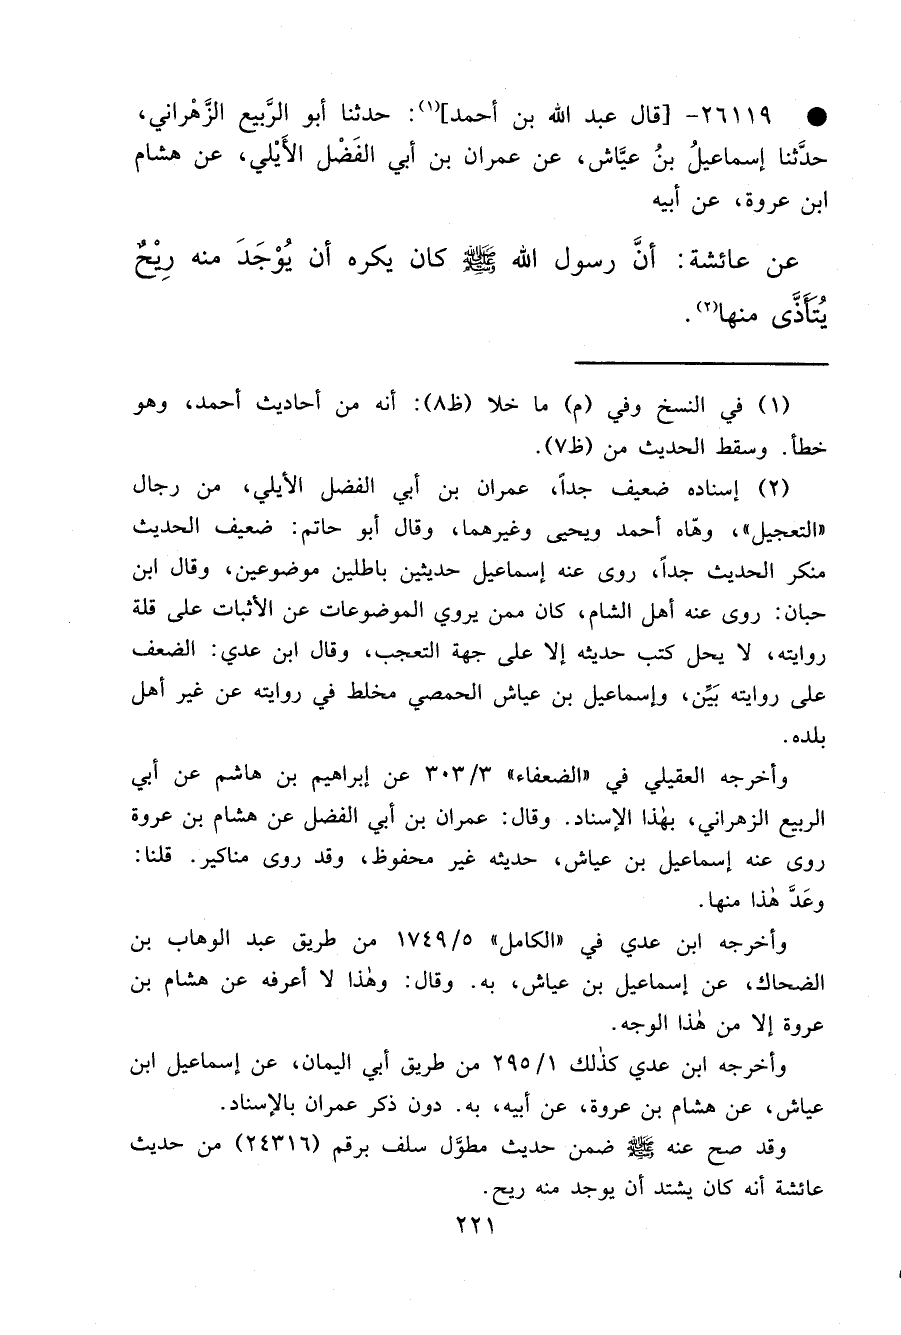 ● ٢٦١١٩- [قال عبد الله بن أحمد](١): حدثنا أبو الرَّبيع الزَّهْراني،
حدَّثنا إسماعيلُ بنُ عيَّاش، عن عمران بن أبي الفَضْل الأَيْلي، عن هشام
ابن عروة، عن أبيه
عن عائشة: أنَّ رسول الله ﷺ كان يكره أن يُوْجَدَ منه رِيْحٌ
يُتَأَذَّى منها(٢).
(١) في النسخ وفي (م) ما خلا (ظ٨): أنه من أحاديث أحمد، وهو
خطأ. وسقط الحديث من (ظ٧).
(٢) إسناده ضعيف جداً، عمران بن أبي الفضل الأيلي، من رجال
«التعجيل»، وهّاه أحمد ويحيى وغيرهما، وقال أبو حاتم: ضعيف الحديث
منكر الحديث جداً، روى عنه إسماعيل حديثين باطلين موضوعين، وقال ابن
حبان: روى عنه أهل الشام، كان ممن يروي الموضوعات عن الأثبات على قلة
روايته، لا يحل كتب حديثه إلا على جهة التعجب، وقال ابن عدي: الضعف
على روايته بَيِّن، وإسماعيل بن عياش الحمصي مخلط في روايته عن غير أهل
بلده.
وأخرجه العقيلي في «الضعفاء» ٣٠٣/٣ عن إبراهيم بن هاشم عن أبي
الربيع الزهراني، بهٰذا الإسناد. وقال: عمران بن أبي الفضل عن هشام بن عروة
روى عنه إسماعيل بن عياش، حديثه غير محفوظ، وقد روى مناكير. قلنا:
وعَدَّ هٰذا منها.
وأخرجه ابن عدي في «الكامل» ١٧٤٩/٥ من طريق عبد الوهاب بن
الضحاك، عن إسماعيل بن عياش، به. وقال: وهٰذا لا أعرفه عن هشام بن
عروة إلا من هٰذا الوجه.
وأخرجه ابن عدي كذٰلك ٢٩٥/١ من طريق أبي اليمان، عن إسماعيل ابن
عياش، عن هشام بن عروة، عن أبيه، به. دون ذكر عمران بالإسناد.
وقد صح عنه ﷺ ضمن حديث مطوَّل سلف برقم (٢٤٣١٦) من حديث
عائشة أنه كان يشتد أن يوجد منه ريح.
٢٢١